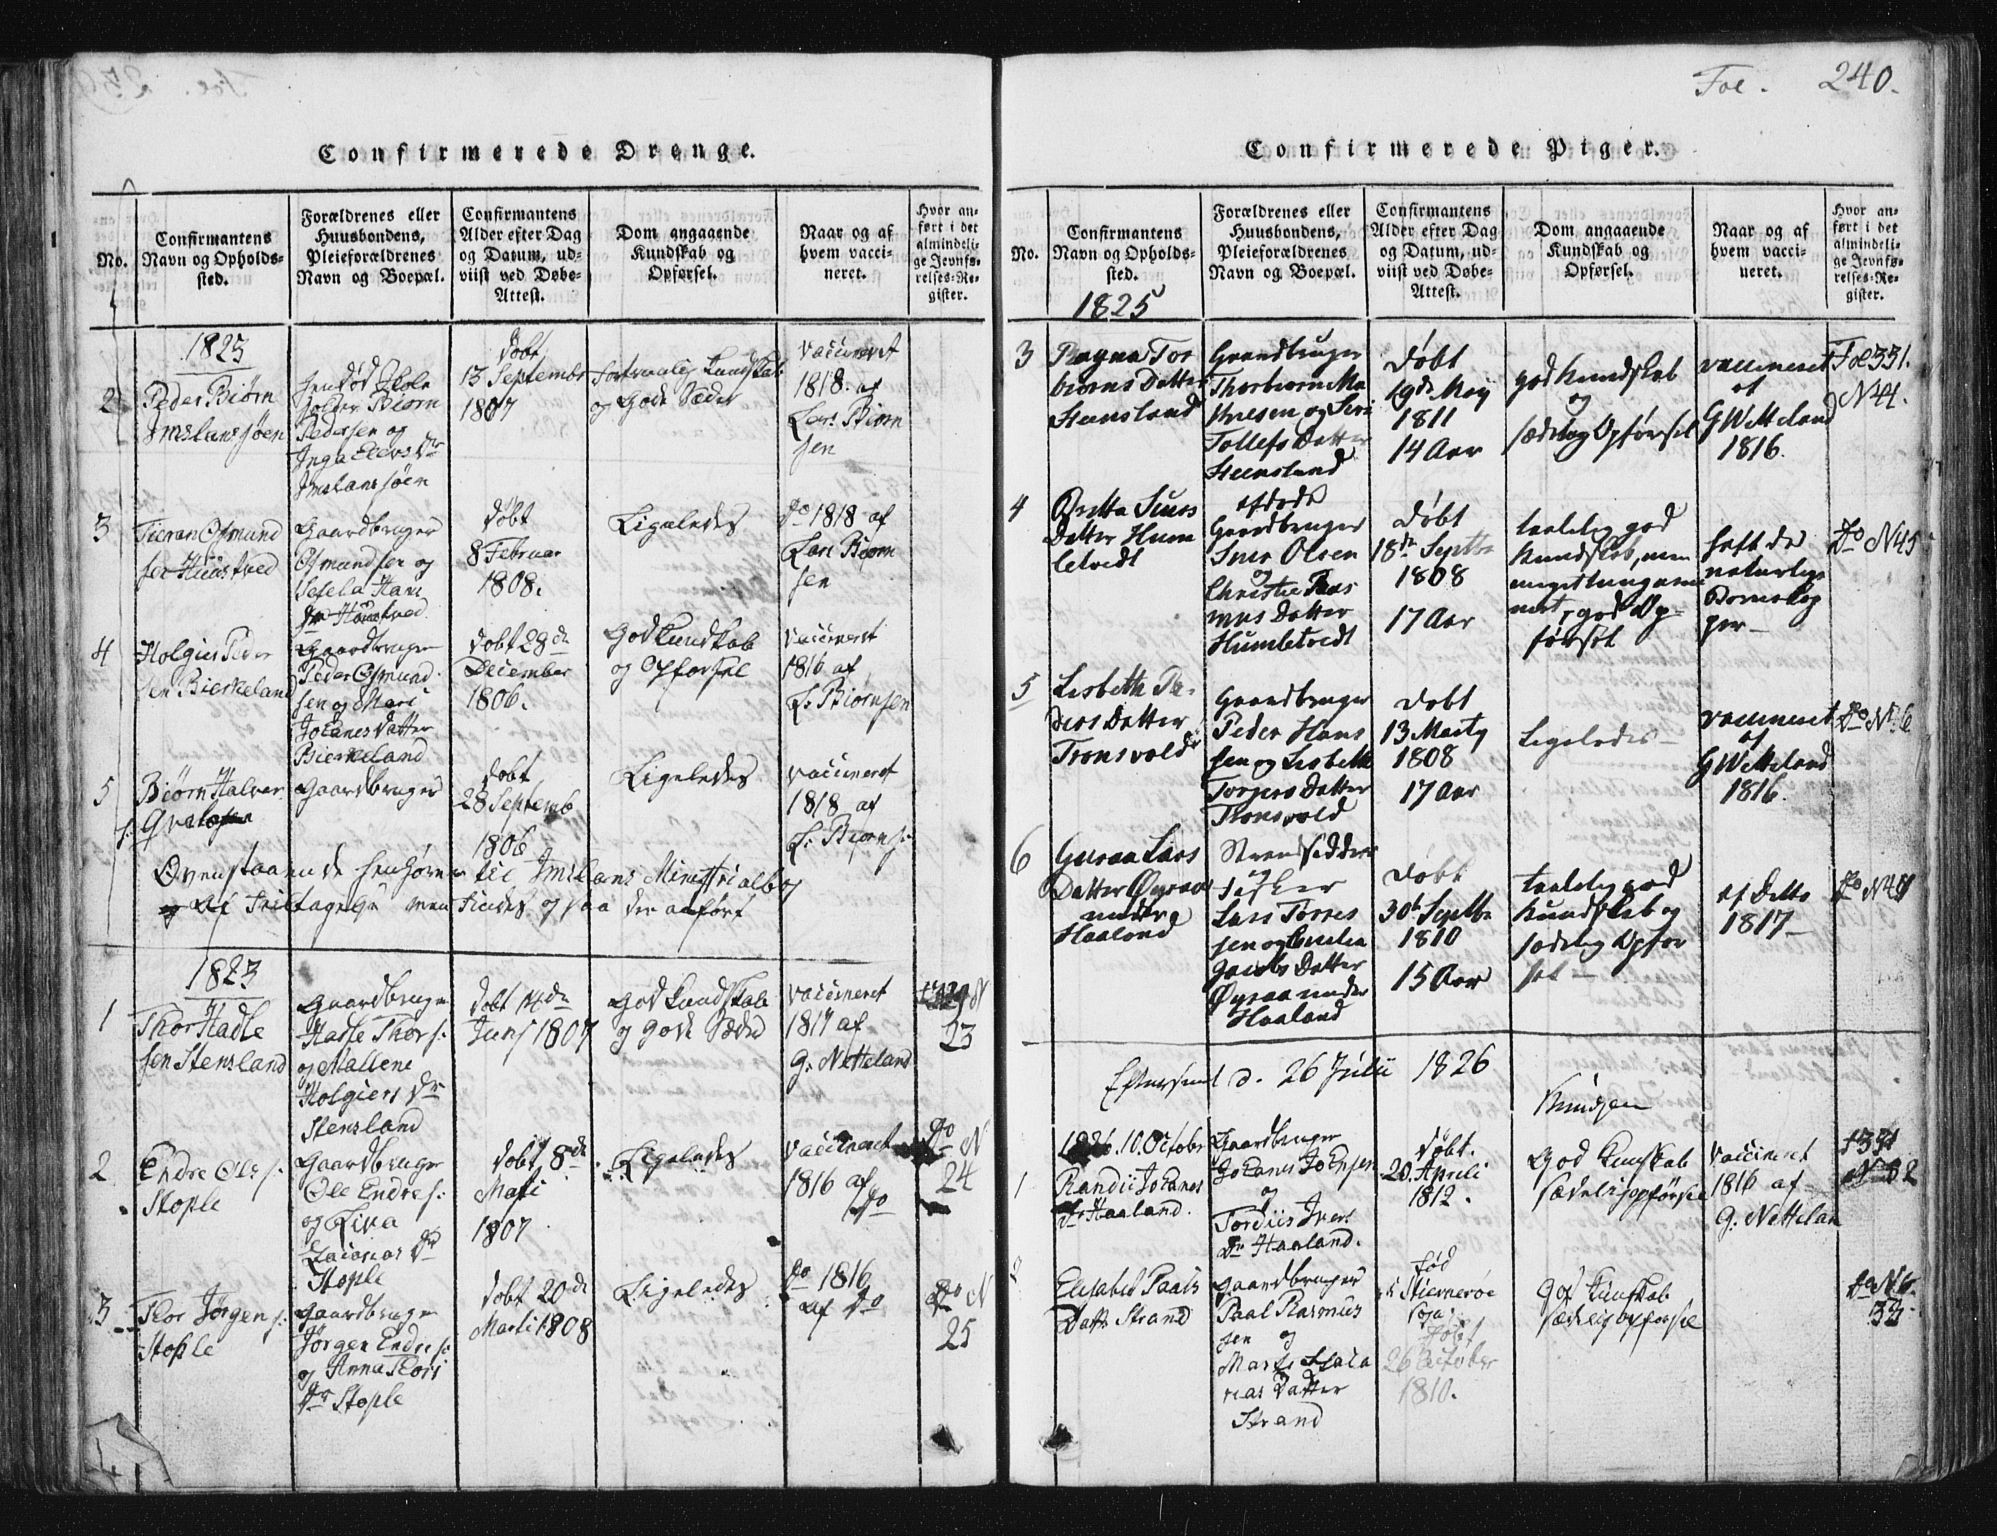 Fol. 240.
Confirmerede Drenge.
No.
Confirmantens
Navn og Opholds-
sted.
Forældrenes eller
Huusbondens,
Pleieforældrenes
Navn og Boepæl.
Confirmantens
Alder efter Dag
og Datum, ud-
viist ved Døbe-
Attest.
Dom angaaende
Kundskab og
Opførsel.
Naar og af
hvem vacci-
neret.
Hvor an-
ført i det
almindeli-
ge Jevnfø-
relses-Re-
gister.
1823
2
Peder Biørn
Imslanssøen
Holder Biørn
Pedersen og
Imslanssøen
døbt
13 September
1807
Kundskab
og Gode Sæder
vaccineret
1818. af
Lars Biørn
sen
3
Osmund
Gaardbruger
Osmundsen og
døbt
8 Februar
1808.
Ligeledes
do 1818 af
Lars Biørn
sen
4
Holgier Peder
sen Bierkeland
Gaardbruger
Peder Osmund
sen og Mari
Johanes Datter
Bierkeland
døbt 28de
December
1806.
God Kundskab
og Opførsel
vaccineret
1816 af
L. Biørnsen
5
Biørn Halvor
s:
Gaardbruger
døbt
28 Septemb
1806
Ligeledes
vaccineret
1818 af
L. Biørns:
Ovenstaaende henhører til Imslans Ministerialbog
og af men findes og saa der anført
1823
1
Thor Hadle
sen Stensland
Gaardbruger
Hadle Thors:
og Mallene
Holgiers Dr
Stensland
døbt 14de
Junj 1807
God Kundskab
og gode Sæder
vaccineret
1817 af
G. Netteland
23
2
Endre Ols:
Stople
Gaardbruger
Ole Endres:
og Liva
Zacarias Dr
Stople
døbt 8de
Maji
1807
Ligeledes
vaccineret
1816 af
do
do N
24
3
Thor Jørgens:
Stople
Gaardbruger
Jørgen Endres:
og Anna Thors
Dr Stople
døbt 20de
Marti 1808
Ligeledes
do 1816
af do
do N
25
Confirmerede Piger.
No.
Confirmantens
Navn og Opholds-
sted.
Forældrenes eller
Huusbondens,
Pleieforældrenes
Navn og Boepæl.
Confirmantens
Alder efter Dag
og Datum, ud-
viist ved Døbe-
Attest.
Dom angaaende
Kundskab og
Opførsel.
Naar og af
hvem vacci-
neret.
Hvor an-
ført i det
almindeli-
ge Jevnfø-
relses-Re-
gister.
1825
3
Ragna Tor
biørns Datter
Gaardbruger
Thorbiørn
og Siri
Tollefs Datter
døbt
19de Maj
1811
14 Aar
god Kundskab
og
sædelig Opførsel
vaccineret
af
G Wetteland
1816.
Fol 331.
N 44.
4
Datter Hum
letvedt
afdøde
Gaardbruger
Olsen
og
Christie Ras
mus Datter
Humletvedt
døbt
18de Septbr
1808
17 Aar
taalelig god
Kundskab, men
god Op-
førsel
haft de
naturlige
Børnekop
per
do N 45
5
Lisbeth Pe-
ders Datter
Tronsvold
Gaardbruger
Peder Hans
sen og Lisbeth
Torgers Datter
Tronsvold
døbt
13 Martj
1808
17 Aar
Ligeledes
vaccineret
af
G Wetteland
1816.
6
Guroa Lars
Datter Øyraas
under
Haaland
Strandsidder
og
Fisker
Lars Torres
sen og
Jacobs Datter
Øyraa under
Haaland
døbt
30te Septbr
1810
15 Aar
taalelig god
Kundskab og
sædelig Opfør
sel
af Ditto
1817
Efterseet d. 26 Julii 1826
Knudsen
1826. 10. October
1
Randi Johanes
Dr Haaland.
Gaardbruger
Johanes Johnsen
og
Tordiis Ivers
Dr Haaland.
døbt.
20. Aprili
1812.
God Kunskab
Sædelig opførsel
vaccineret
1816 af
G. Nettelan
2
Elisabet Paals
Datt. Strand
Gaardbruger
Paal Rasmus
sen og
Marte
rias Datter
Strand
fød
i Stiernerøe
Sogn
døbt
26 October
1810.
God Kunskab
Sædelig opførsel
do No
33.